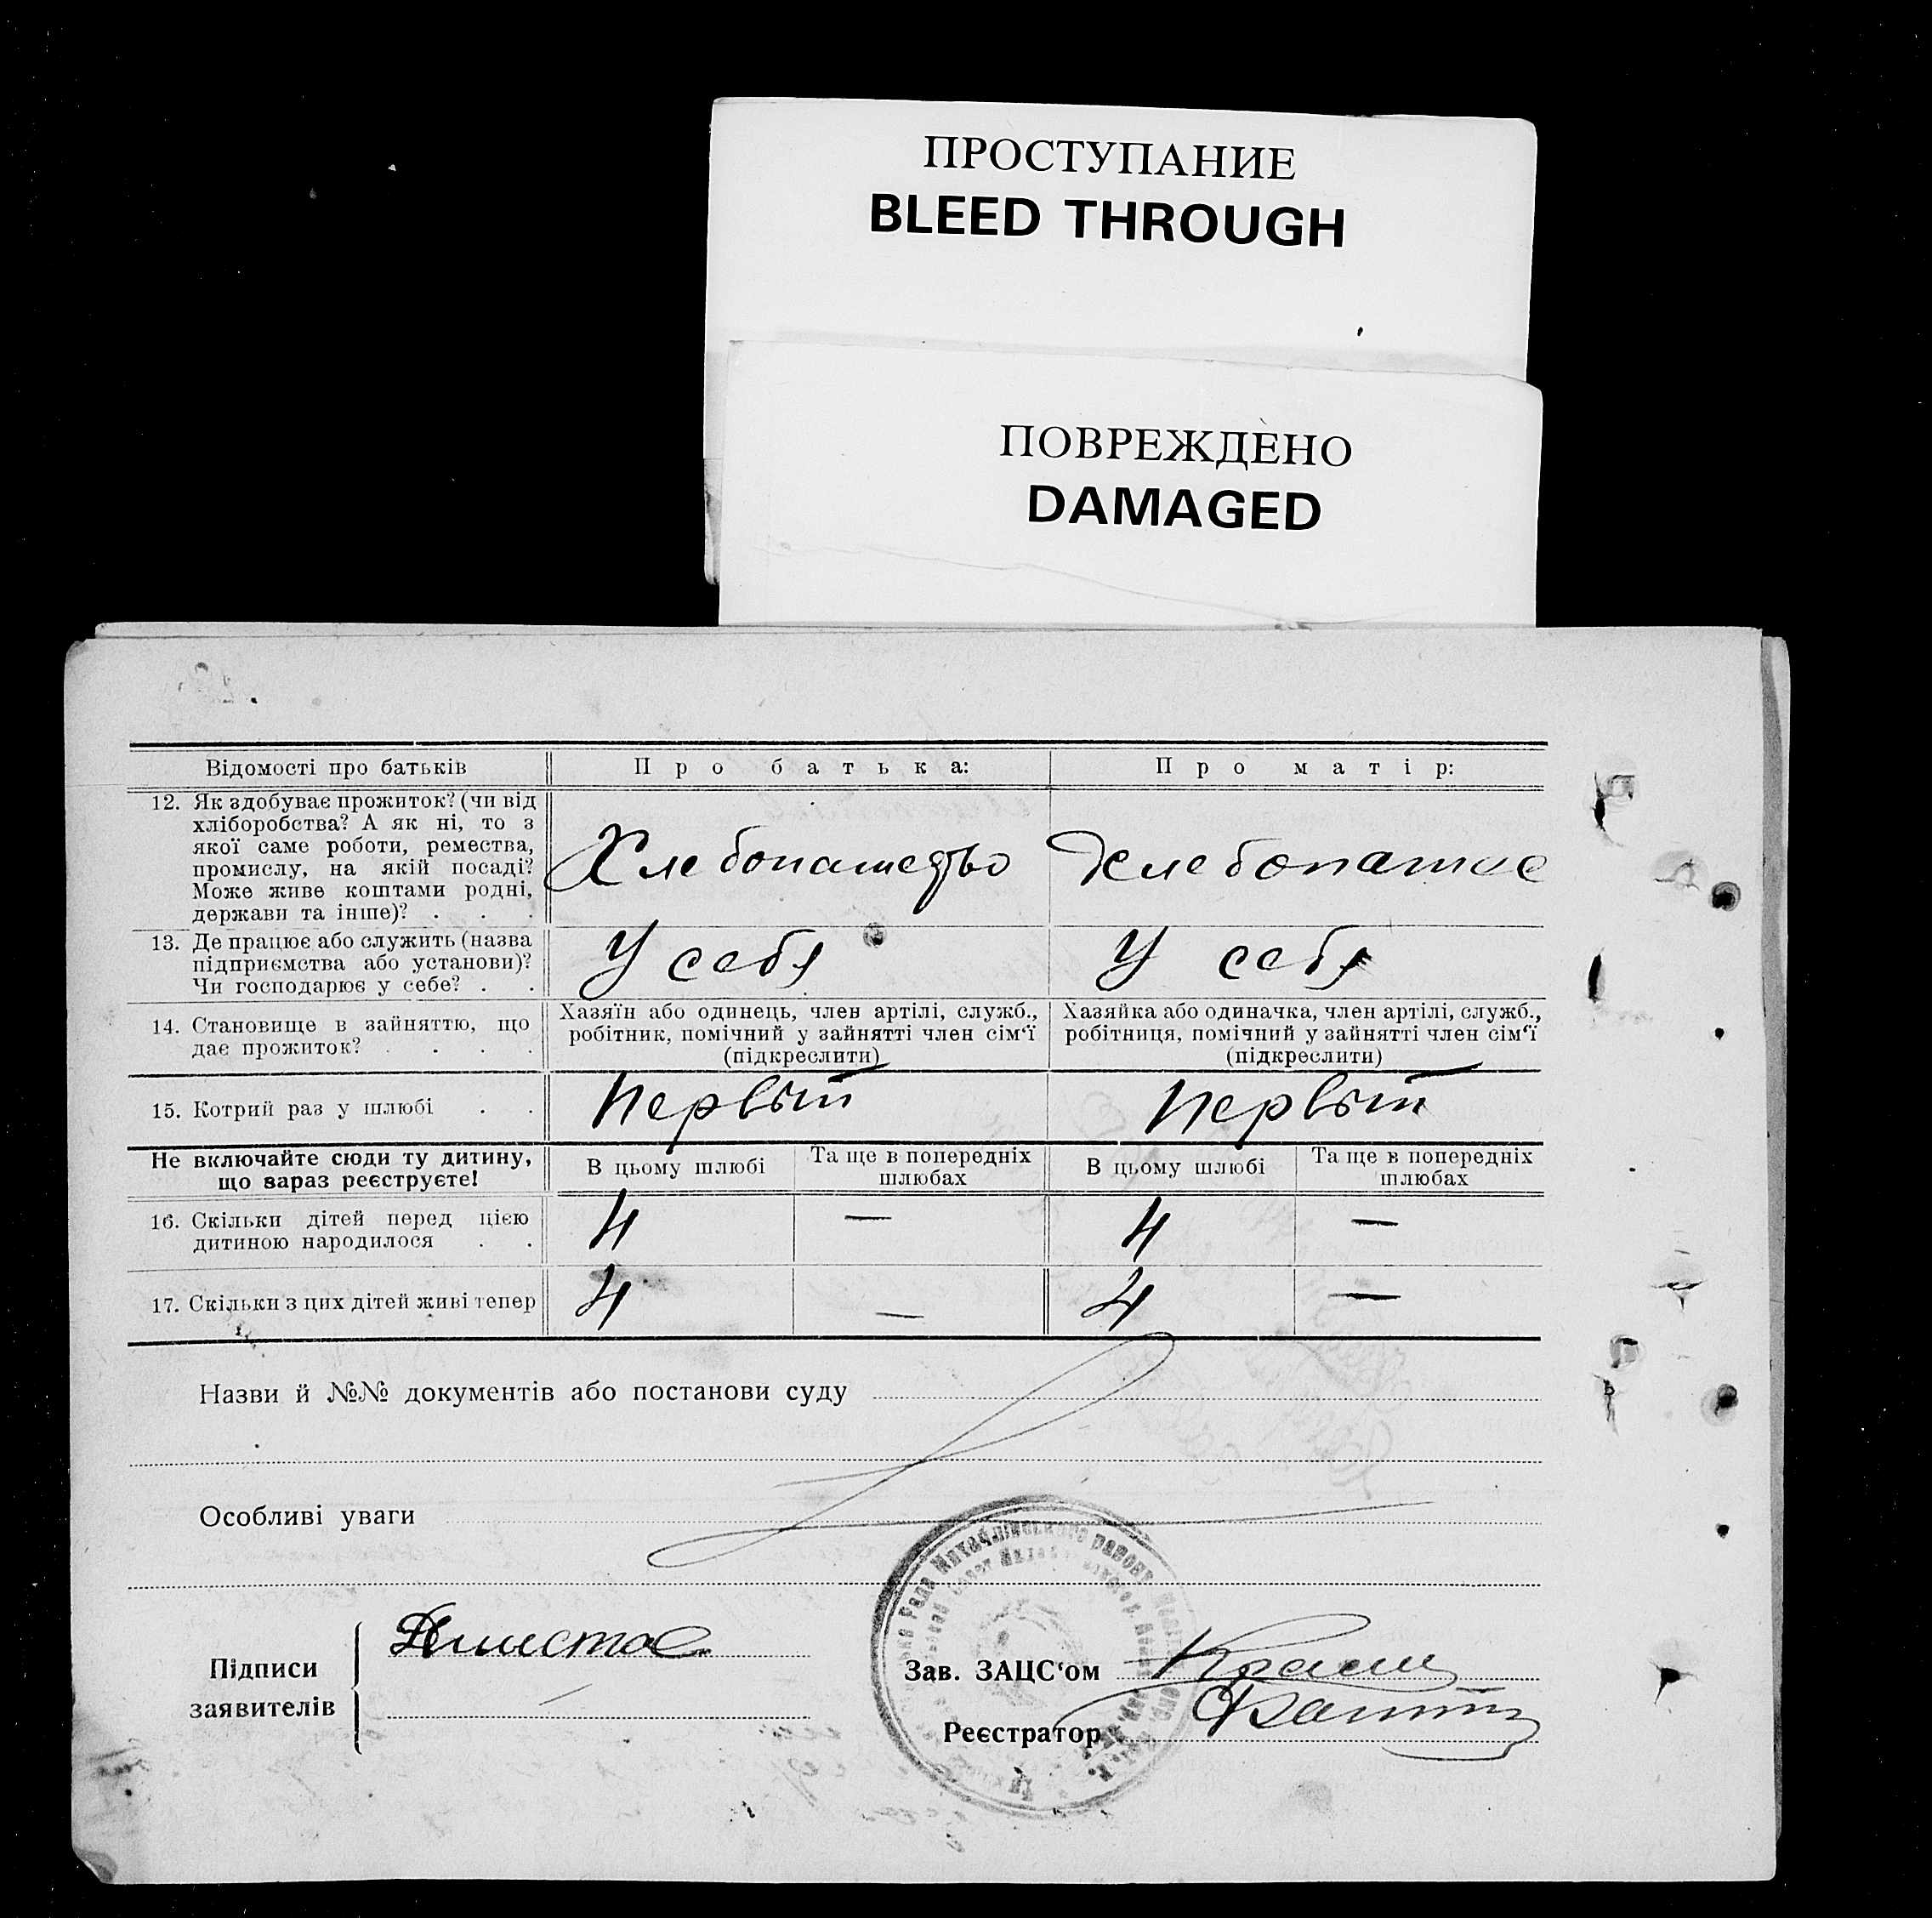 ПРОСТУПАНИЕ
BLEED THROUGH
ПОВРЕЖДЕНО
DAMAGED
Відомості про батьків
Про батька:
Про матір:
12. Як здобуває прожиток? (чи від
хліборобства? А як ні, то з
якої саме роботи, ремества,
промислу, на якій посаді?
Може живе коштами родні,
держави та інше)? . . .
Хлебопашество
Хлебопашес
13. Де працює або служить (назва
підприємства або установи)?
Чи господарює у себе? . .
У себя
У себя
14. Становище в зайняттю, що
дає прожиток? . . . .
Хазяїн або одинець, член артілі, служб.,
робітник, помічний у зайнятті член сім‘ї
(підкреслити)
Хазяйка або одиначка, член артілі, служб.,
робітниця, помічний у зайнятті член сім‘ї
(підкреслити)
15. Котрий раз у шлюбі . .
Первый
Первый
Не включайте сюди ту дитину,
що зараз реєструєте!
В цьому шлюбі
Та ще в попередніх
шлюбах
В цьому шлюбі
Та ще в попередніх
шлюбах
16. Скільки дітей перед цією
дитиною народилося . .
4 — 4 —
17. Скільки з цих дітей живі тепер
4 — 4 —
Назви й №№ документів або постанови суду
Особливі уваги
Підписи
заявителів
Зав. ЗАЦС‘ом
Реєстратор
Рада района